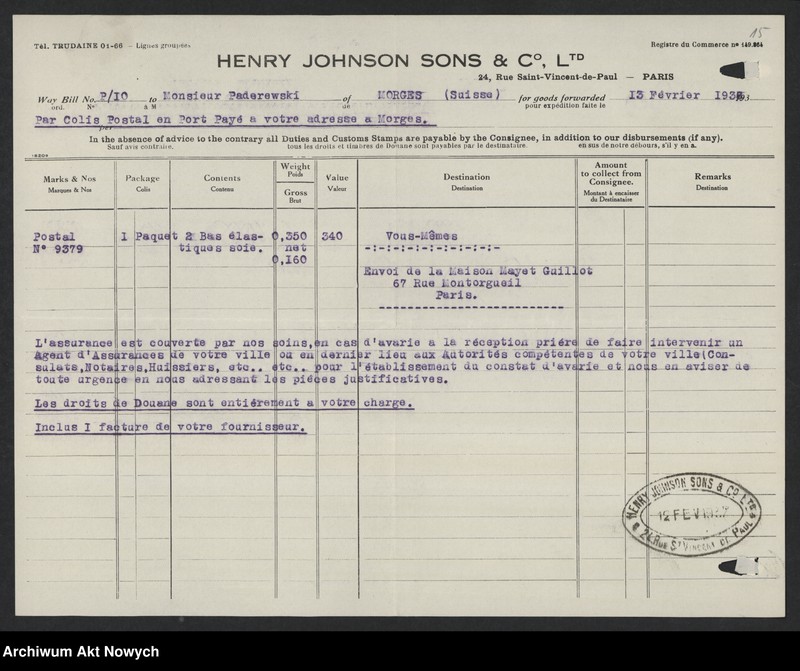 15
Tél. TRUDAINE 01-66 — Lignes groupées.
Registre du Commerce nº 149.264
HENRY JOHNSON SONS & Cº, LTD
24, Rue Saint-Vincent-de-Paul — PARIS
Way Bill No. P/10 to Monsieur Paderewski of MORGES (Suisse) for goods forwarded 13 Février 193
ord. Nº à M de pour expédition faite le
Par Colis Postal en Port Payé a votre adresse a Morges.
per
In the absence of advice to the contrary all Duties and Customs Stamps are payable by the Consignee, in addition to our disbursements (if any).
Sauf avis contraire. tous les droits et timbres de Douane sont payables par le destinataire. en sus de notre débours, s'il y en a.
Marks & Nos Package Contents Weight Value Destination Amount to collect from Consignee. Remarks
Marques & Nos Colis Contenu Poids Valeur Destination Montant à encaisser du Destinataire Destination
Gross
Brut
Postal 1 Paquet 2 Bas élas- 0,350 340 Vous-Mêmes
Nº 9379 tiques soie. net -:-:-:-:-:-:-:-:-:-
0,160
Envoi de la Maison Mayet Guillot
67 Rue Montorgueil
Paris.
L'assurance est couverte par nos soins,en cas d'avarie a la réception priére de faire intervenir un
Agent d'Assurances de votre ville ou en dernier lieu aux Autorités compétentes de votre ville(Con-
sulats,Notaires,Huissiers, etc.. etc.. pour l'établissement du constat d'avarie et nous en aviser de
toute urgence en nous adressant les piéces justificatives.
Les droits de Douane sont entiérement a votre charge.
Inclus I facture de votre fournisseur.
HENRY JOHNSON SONS & Cº LTD
12 FEV
24 Rue St Vincent de Paul
Archiwum Akt Nowych